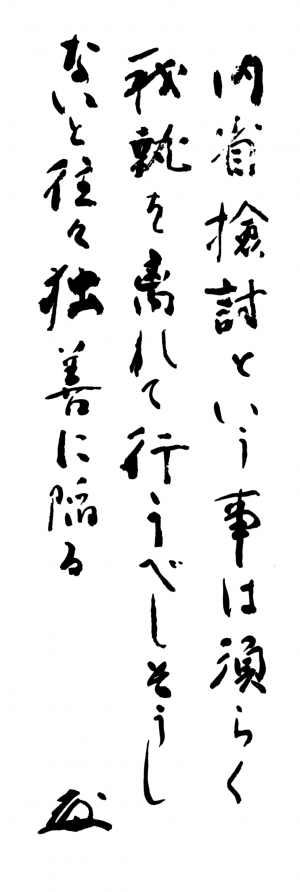 内省検討という事は須らく
我執を離れて行うべしそうし
ないと往々独善に陥る